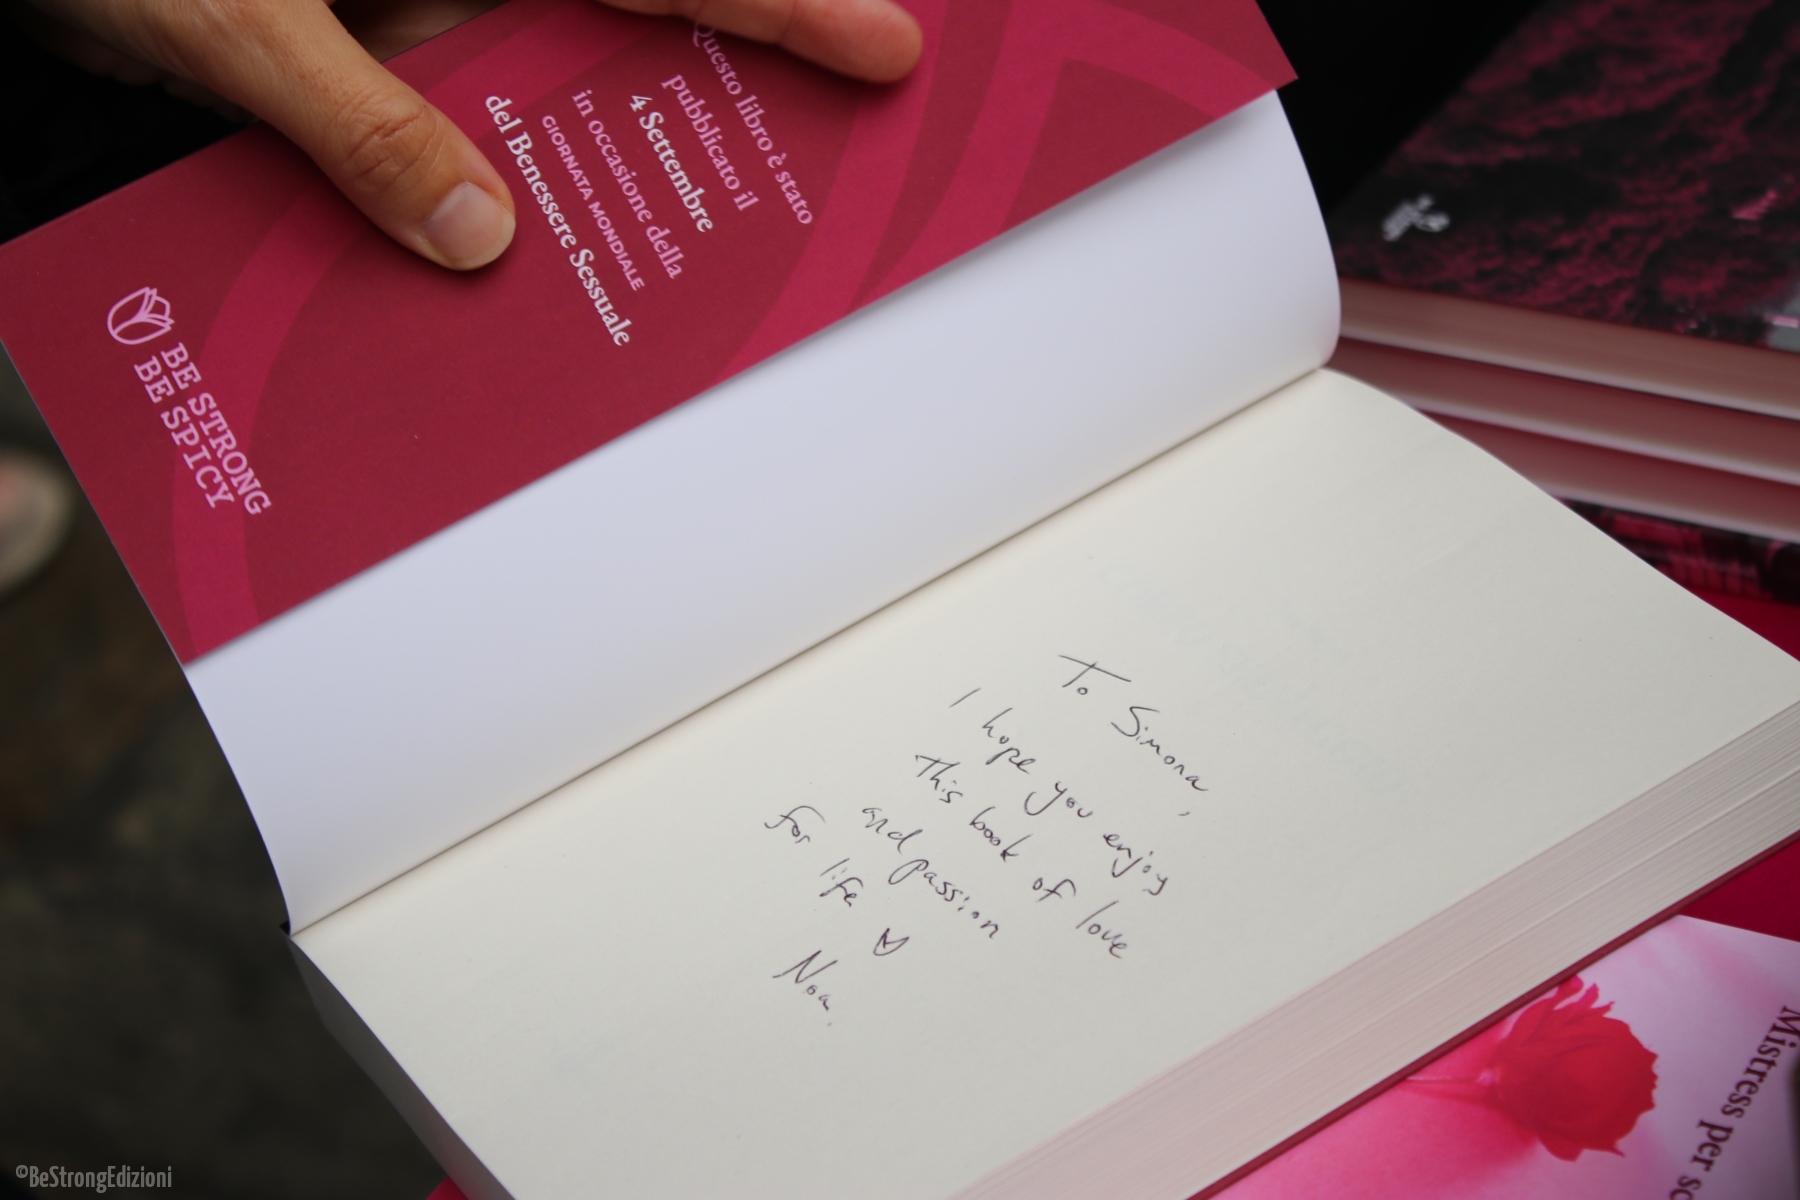 Questo libro è stato
pubblicato il
4 Settembre
in occasione della
GIORNATA MONDIALE
del Benessere Sessuale
BE STRONG
BE SPICY
To Simona,
I hope you enjoy
this book of love
and passion
for life
Noa.
Mistress per
©BeStrongEdizioni